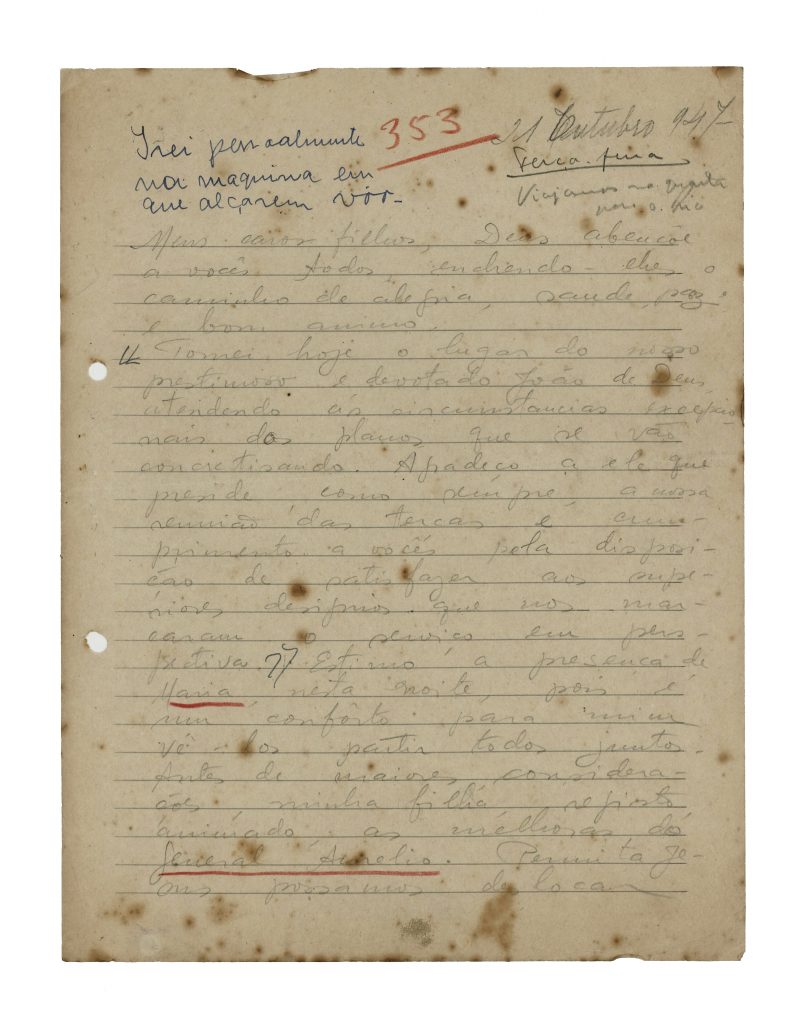 Irei pessoalmente
na maquina em
que alçarem vôo-
353
21 Outubro 947
Terça-feira
Viajamos na quarta
para o Rio
Meus caros filhos, Deus abençôe
a vocês todos, enchendo-lhes o
caminho de alegria, saude, paz
e bom animo.
"Tomei hoje o lugar do nosso
prestimoso e devotado João de Deus,
atendendo ás circumstancias excepcio-
nais dos planos que se vão
concretisando. Agradeço a ele que
preside, como sempre, a nossa
reunião das terças e cum-
primento a vocês pela disposi-
ção de satisfazer aos supe-
riores designios que nos mar-
caram o serviço em pers-
pectiva." Estimo a presença de
Maria, nesta noite, pois é
um confôrto para mim
vê-los partir todos juntos.
Antes de maiores considera-
ções, minha filha, registo
animado as melhoras do
General Aurelio. Permita Je-
sus possamos deslocar